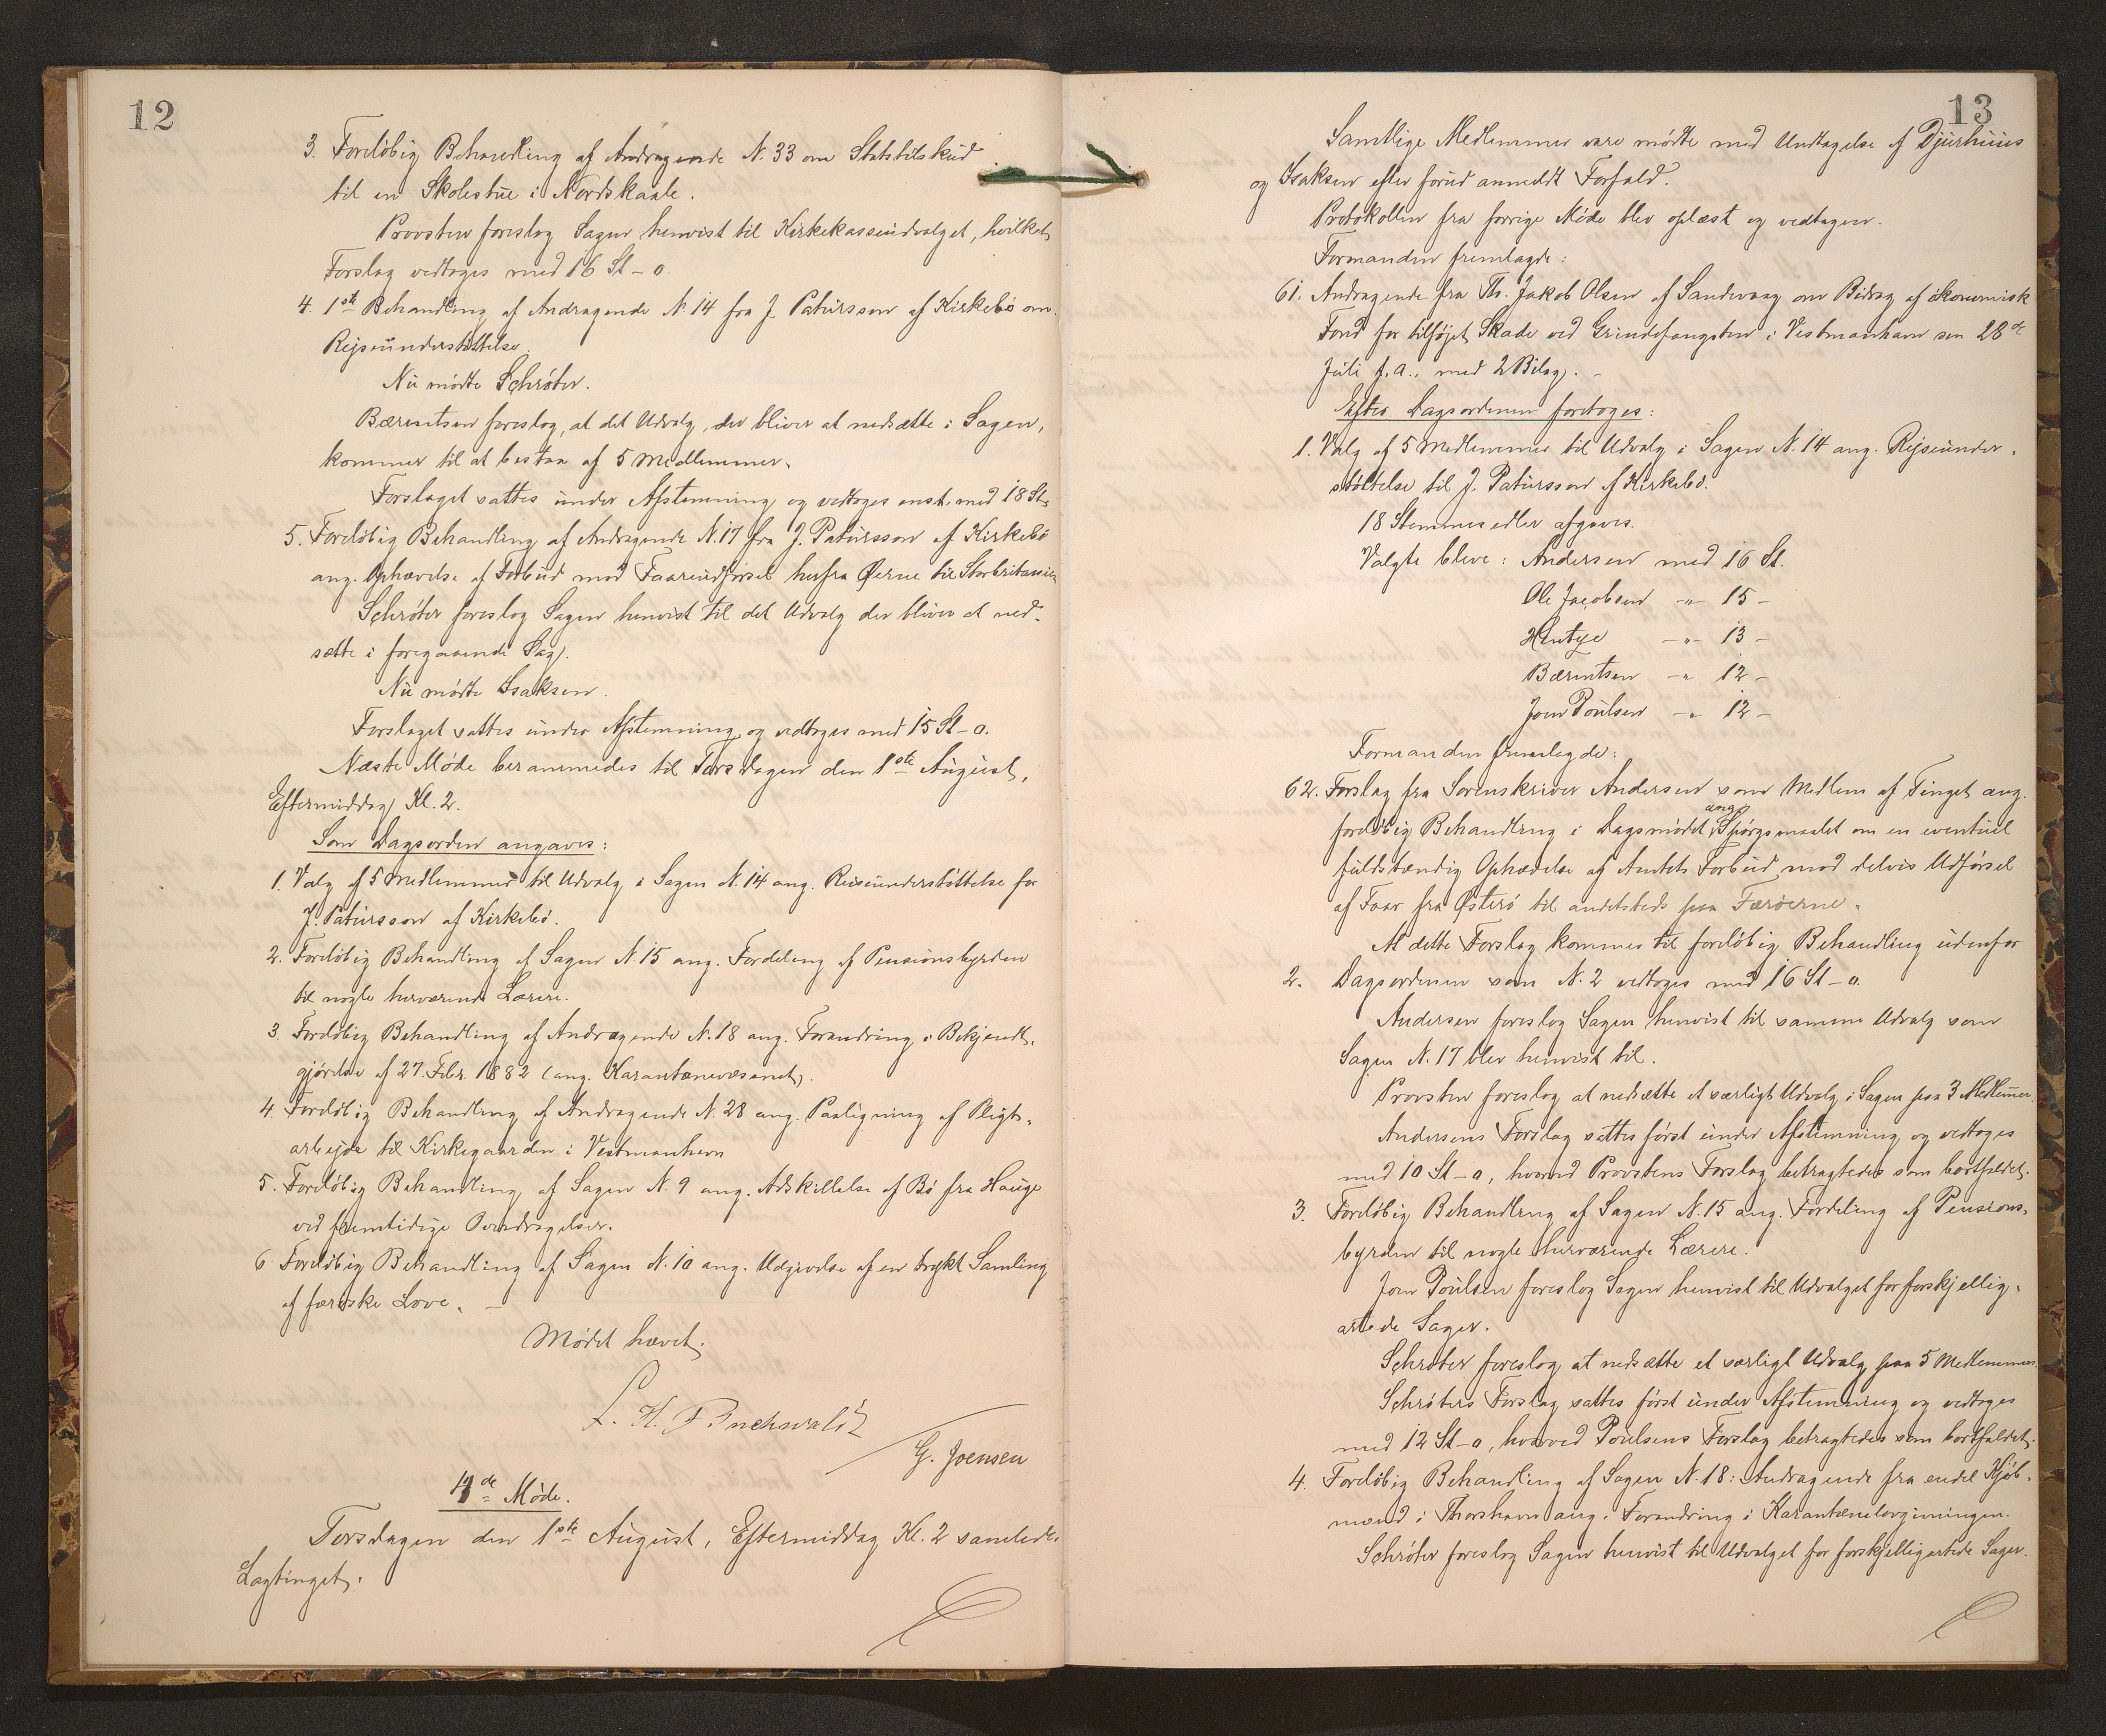 12
3. Foreløbig Behandling af Andragende N. 33 om Statstilskud
til en Skolestue i Nordskaale.
Provsten foreslog Sagen henvist til Kirkekasseudvalget, hvilket
Forslag vedtoges med 16 St - o.
4. 1ste Behandling af Andragende N. 14 fra J. Patursson af Kirkebø om
Rejseunderstøttelse.
Nu mødte Schrøter.
Bærentsen foreslog, at det Udvalg, der bliver at nedsætte i Sagen,
kommer til at bestaa af 5 Medlemmer.
Forslaget sattes under Afstemning og vedtoges enst. med 18 St.
5. Foreløbig Behandling af Andragende N. 17 fra J. Patursson af Kirkebø
ang. Ophævelse af Forbud mod Faareudførsel herfra Øerne til Storbritanien
Schrøter foreslog Sagen henvist til det Udvalg der bliver at ned-
sætte i foregaaende Sag.
Nu mødte Isaksen.
Forslaget sattes under Afstemning og vedtoges med 15 St - o.
Næste Møde berammedes til Torsdagen den 1ste August,
Eftermiddag Kl. 2.
Som Dagsorden angaves:
1. Valg af 5 Medlemmer til Udvalg i Sagen N. 14 ang. Reiseunderstøttelse for
J. Patursson af Kirkebø.
2. Foreløbig Behandling af Sagen N. 15 ang. Fordeling af Pensionsbyrden
til nogle herværende Lærere.
3. Foreløbig Behandling af Andragende N. 18 ang. Forandring i Bekjendt-
gjørelse af 27. Febr. 1882 (ang. Karantænevæsenet).
4. Foreløbig Behandling af Andragende N. 28 ang. Paaligning af Pligts-
arbejde til Kirkegaarden i Vestmanhavn
5. Foreløbig Behandling af Sagen N. 9 ang. Adskillelse af Bø fra Hauge
ved fremtidige Overdragelser.
6 Foreløbig Behandling af Sagen N. 10 ang. Udgivelse af en trykt Samling
af færøske Love. -
Mødet hævet.
G. Joensen
4de Møde.
Torsdagen den 1ste August, Eftermiddag Kl. 2 samledes
Lagtinget.
13
Samtlige Medlemmer vare mødte med Undtagelse af Djurhuus
og Isaksen efter forud anmeldt Forfald.
Protokollen fra forrige Møde blev oplæst og vedtagen.
Formanden fremlagde:
61. Andragende fra Th. Jakob Olsen af Sandevaag om Bidrag af økonomisk
Fond for tilføjet Skade ved Grindefangsten i Vestmanhavn den 28de
Juli f. a., med 2 Bilag. -
Efter Dagsordenen foretoges:
1. Valg af 5 Medlemmer til Udvalg i Sagen N. 14 ang. Rejseunder-
støttelse til J. Patursson af Kirkebø.
18 Stemmesedler afgaves.
Valgte bleve: Andersen med 16 St.
Ole Jacobsen -"- 15 -
Hentze -"- 13 -
Bærentsen -"- 12 -
Joen Poulsen -"- 12 -
Formanden fremlagde:
62. Forslag fra Sorenskriver Andersen som Medlem af Tinget ang.
foreløbig Behandling i Dagsmødet ang. Spørgsmaalet om en eventuel
fuldstændig Ophævelse af Amtets Forbud mod delvis Udførsel
af Faar fra Østerø til andetsteds paa Færøerne.
At dette Forslag kommer til foreløbig Behandling udenfor
2. Dagsordenen som N. 2 vedtoges med 16 St - o.
Andersen foreslog Sagen henvist til samme Udvalg som
Sagen N. 17 blev henvist til.
Provsten foreslog at nedsætte et særligt Udvalg i Sagen paa 3 Medlemmer.
Andersens Forslag sattes først under Afstemning og vedtoges
med 10 St - o, hvorved Provstens Forslag betragtedes som bortfaldet.
3. Foreløbig Behandling af Sagen N. 15 ang. Fordeling af Pensions-
byrden til nogle herværende Lærere.
Joen Poulsen foreslog Sagen henvist til Udvalget for forskjellig-
artede Sager.
Schrøter foreslog at nedsætte et særligt Udvalg paa 5 Medlemmer.
Schrøters Forslag sattes først under Afstemning og vedtoges
med 12 St - o, hvorved Poulsens Forslag betragtedes som bortfaldet.
4. Foreløbig Behandling af Sagen N. 18: Andragende fra endel Kjøb-
mænd i Thorshavn ang. Forandring i Karantænelovgivningen.
Schrøter foreslog Sagen henvist til Udvalget for forskjelligartede Sager.